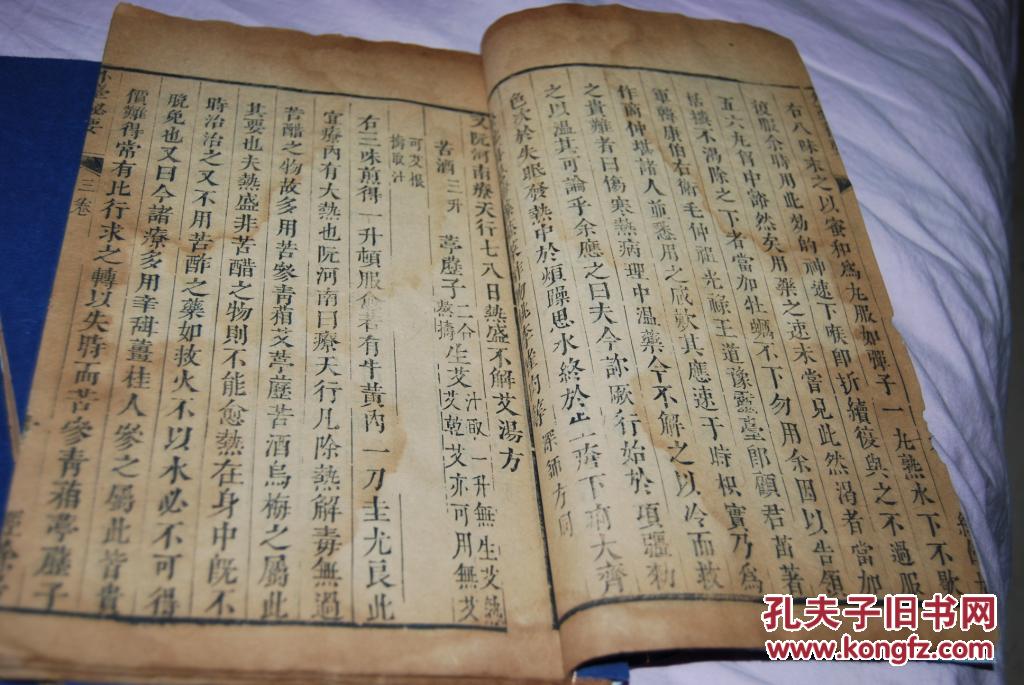 右八味末之以蜜和為丸服如彈子一丸熱水下不歇
復服余時用此劾的神速下喉即折續復與之不過服
五六丸胷中諦然矣用藥之速未嘗見此然渴者當加
括摟不渴除之下者當加牡蠣不下勿用余因以告領
軍韓康伯右衛毛仲祖光祿王道豫靈臺郎顧君苗著
作商仲堪諸人並悉用之咸歎其應速于時枳實乃為
之貴難者曰傷寒熱病理中温藥今不解之以冷而救
之以温其可論乎余應之曰夫今訴歐行始於項彊
色次於失眠發熱中於煩躁思水終於止一齊下大齊
深師方同
又阮河南療天行七八日熱盛不解艾湯方
苦酒三升 葶藶子二合 生艾汁取一升無生艾熱艾乾艾亦可用無艾
可艾根擣取汁
右三味煎得一升頓服愈若有牛黃內一刀圭尤良此
宜療內有大熱也阮河南曰療天行凡除熱解毒無過
苦醋之物故多用苦參青葙艾葶藶苦酒烏梅之屬此
其要也夫熱盛非苦醋之物則不能愈熱在身中既不
時治治之又不用苦酢之藥如救火不以水必不可得
脫免也又曰今諸療多用辛甜薑桂人參之屬此皆貴
價難得常有比行求之轉以失時而苦參青葙葶藶子
三卷
孔夫子旧书网
www.kongfz.com